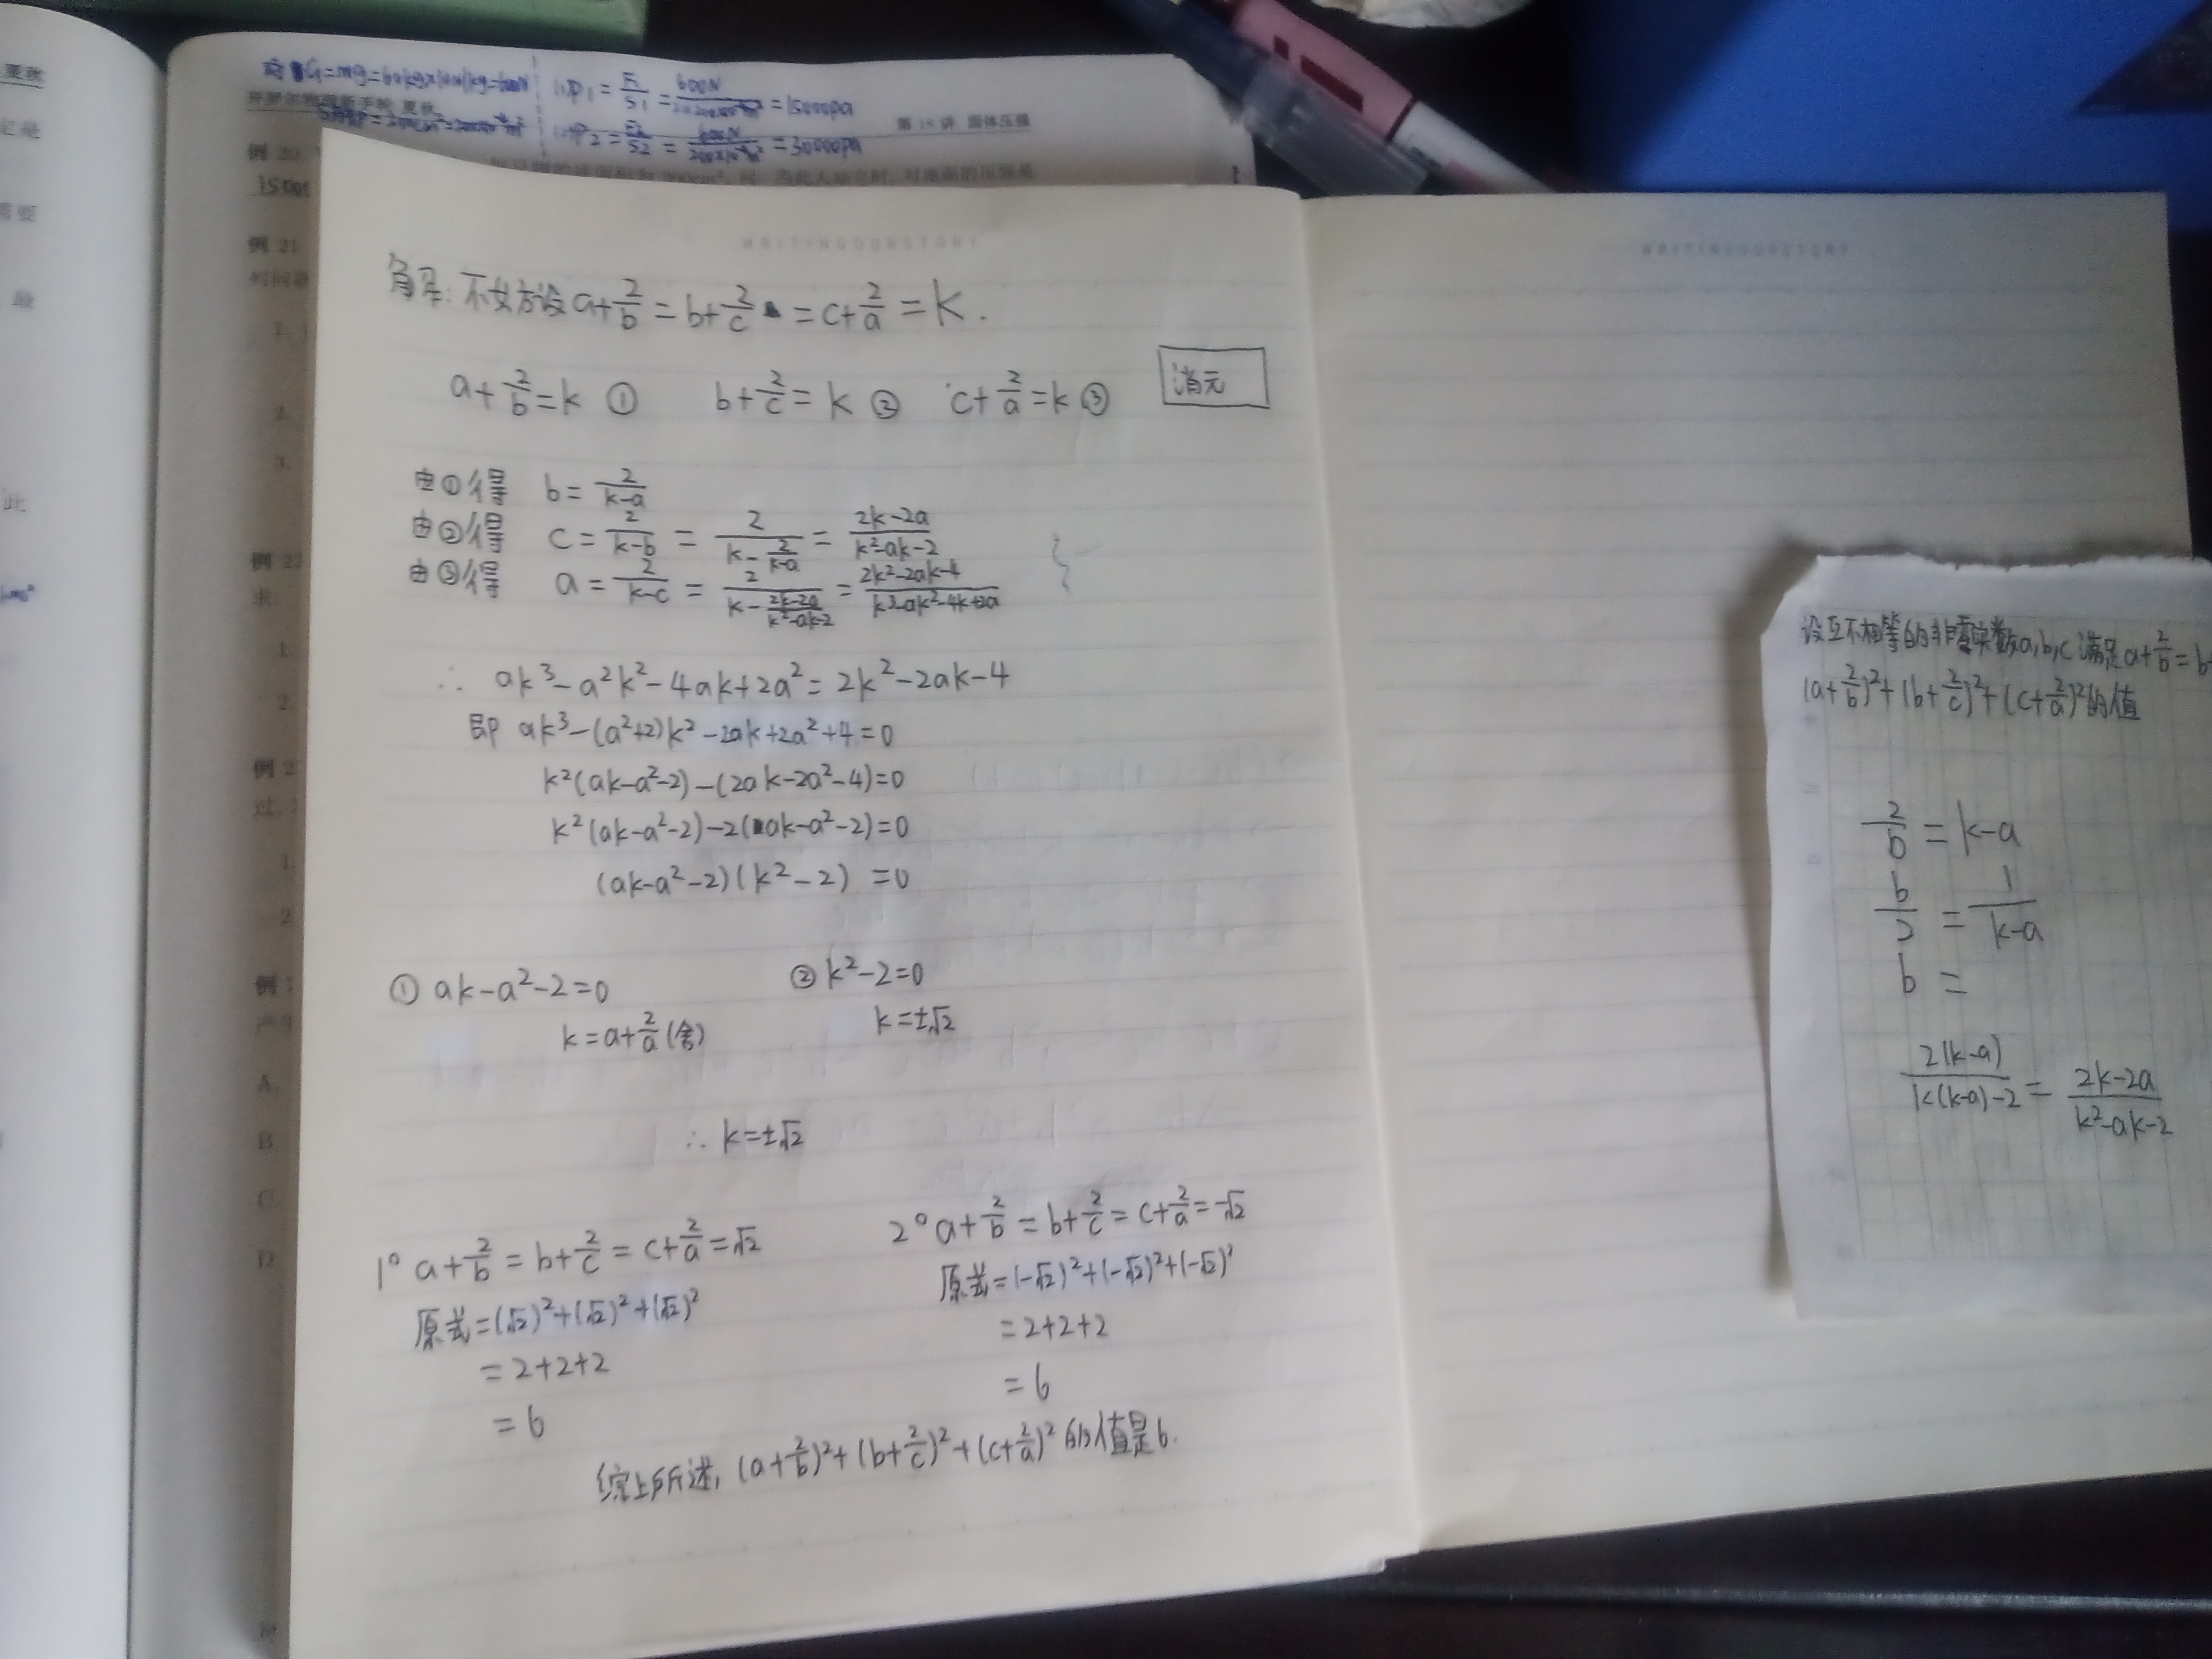 夏秋
定是
需要
最
此
G=mg=60kg×10N/kg=600N
(1)P₁=F₁/S₁=600N/=15000pa
(2)P₂=F₂/S₂=600N/=30000pa
第 18 讲 固体压强
例 20.
1500
例 21
1.
2.
3.
例 22
求:
1.
2.
例 2
过
1.
2
例
A.
B.
C.
D.
WRITINGOURSTORY
解:不妨设a+2/b=b+2/c=c+2/a=k.
a+2/b=k ① b+2/c=k ② c+2/a=k ③
消元
由①得 b=2/(k-a)
由②得 c=2/(k-b)=2/(k-2/(k-a))=(2k-2a)/(k²-ak-2)
由③得 a=2/(k-c)=2/(k-(2k-2a)/(k²-ak-2))=(2k²-2ak-4)/(k³-ak²-4k+2a)
∴ ak³-a²k²-4ak+2a²=2k²-2ak-4
即 ak³-(a²+2)k²-2ak+2a²+4=0
k²(ak-a²-2)-(2ak-2a²-4)=0
k²(ak-a²-2)-2(ak-a²-2)=0
(ak-a²-2)(k²-2)=0
① ak-a²-2=0 ② k²-2=0
k=a+2/a(舍) k=±√2
∴ k=±√2
1° a+2/b=b+2/c=c+2/a=√2
原式=(√2)²+(√2)²+(√2)²
=2+2+2
=6
2° a+2/b=b+2/c=c+2/a=-√2
原式=(-√2)²+(-√2)²+(-√2)²
=2+2+2
=6
综上所述,(a+2/b)²+(b+2/c)²+(c+2/a)²的值是6.
WRITINGOURSTORY
设互不相等的非零实数a,b,c满足a+2/b=b+
(a+2/b)²+(b+2/c)²+(c+2/a)²的值
2/b=k-a
b/2=1/(k-a)
b=
2(k-a)/(k(k-a)-2)=(2k-2a)/(k²-ak-2)